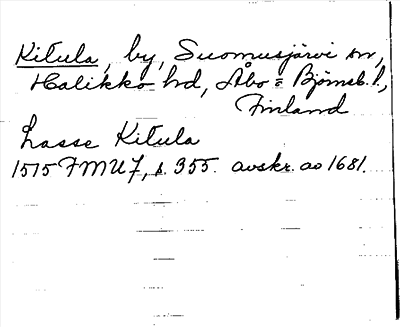 Kitula, by, Suomusjärvi sn,
Halikko hd, Åbo = Björneb. l.,
Finland
Lasse Kitula
1515 FMU 7, s. 355. avskr. ao 1681.